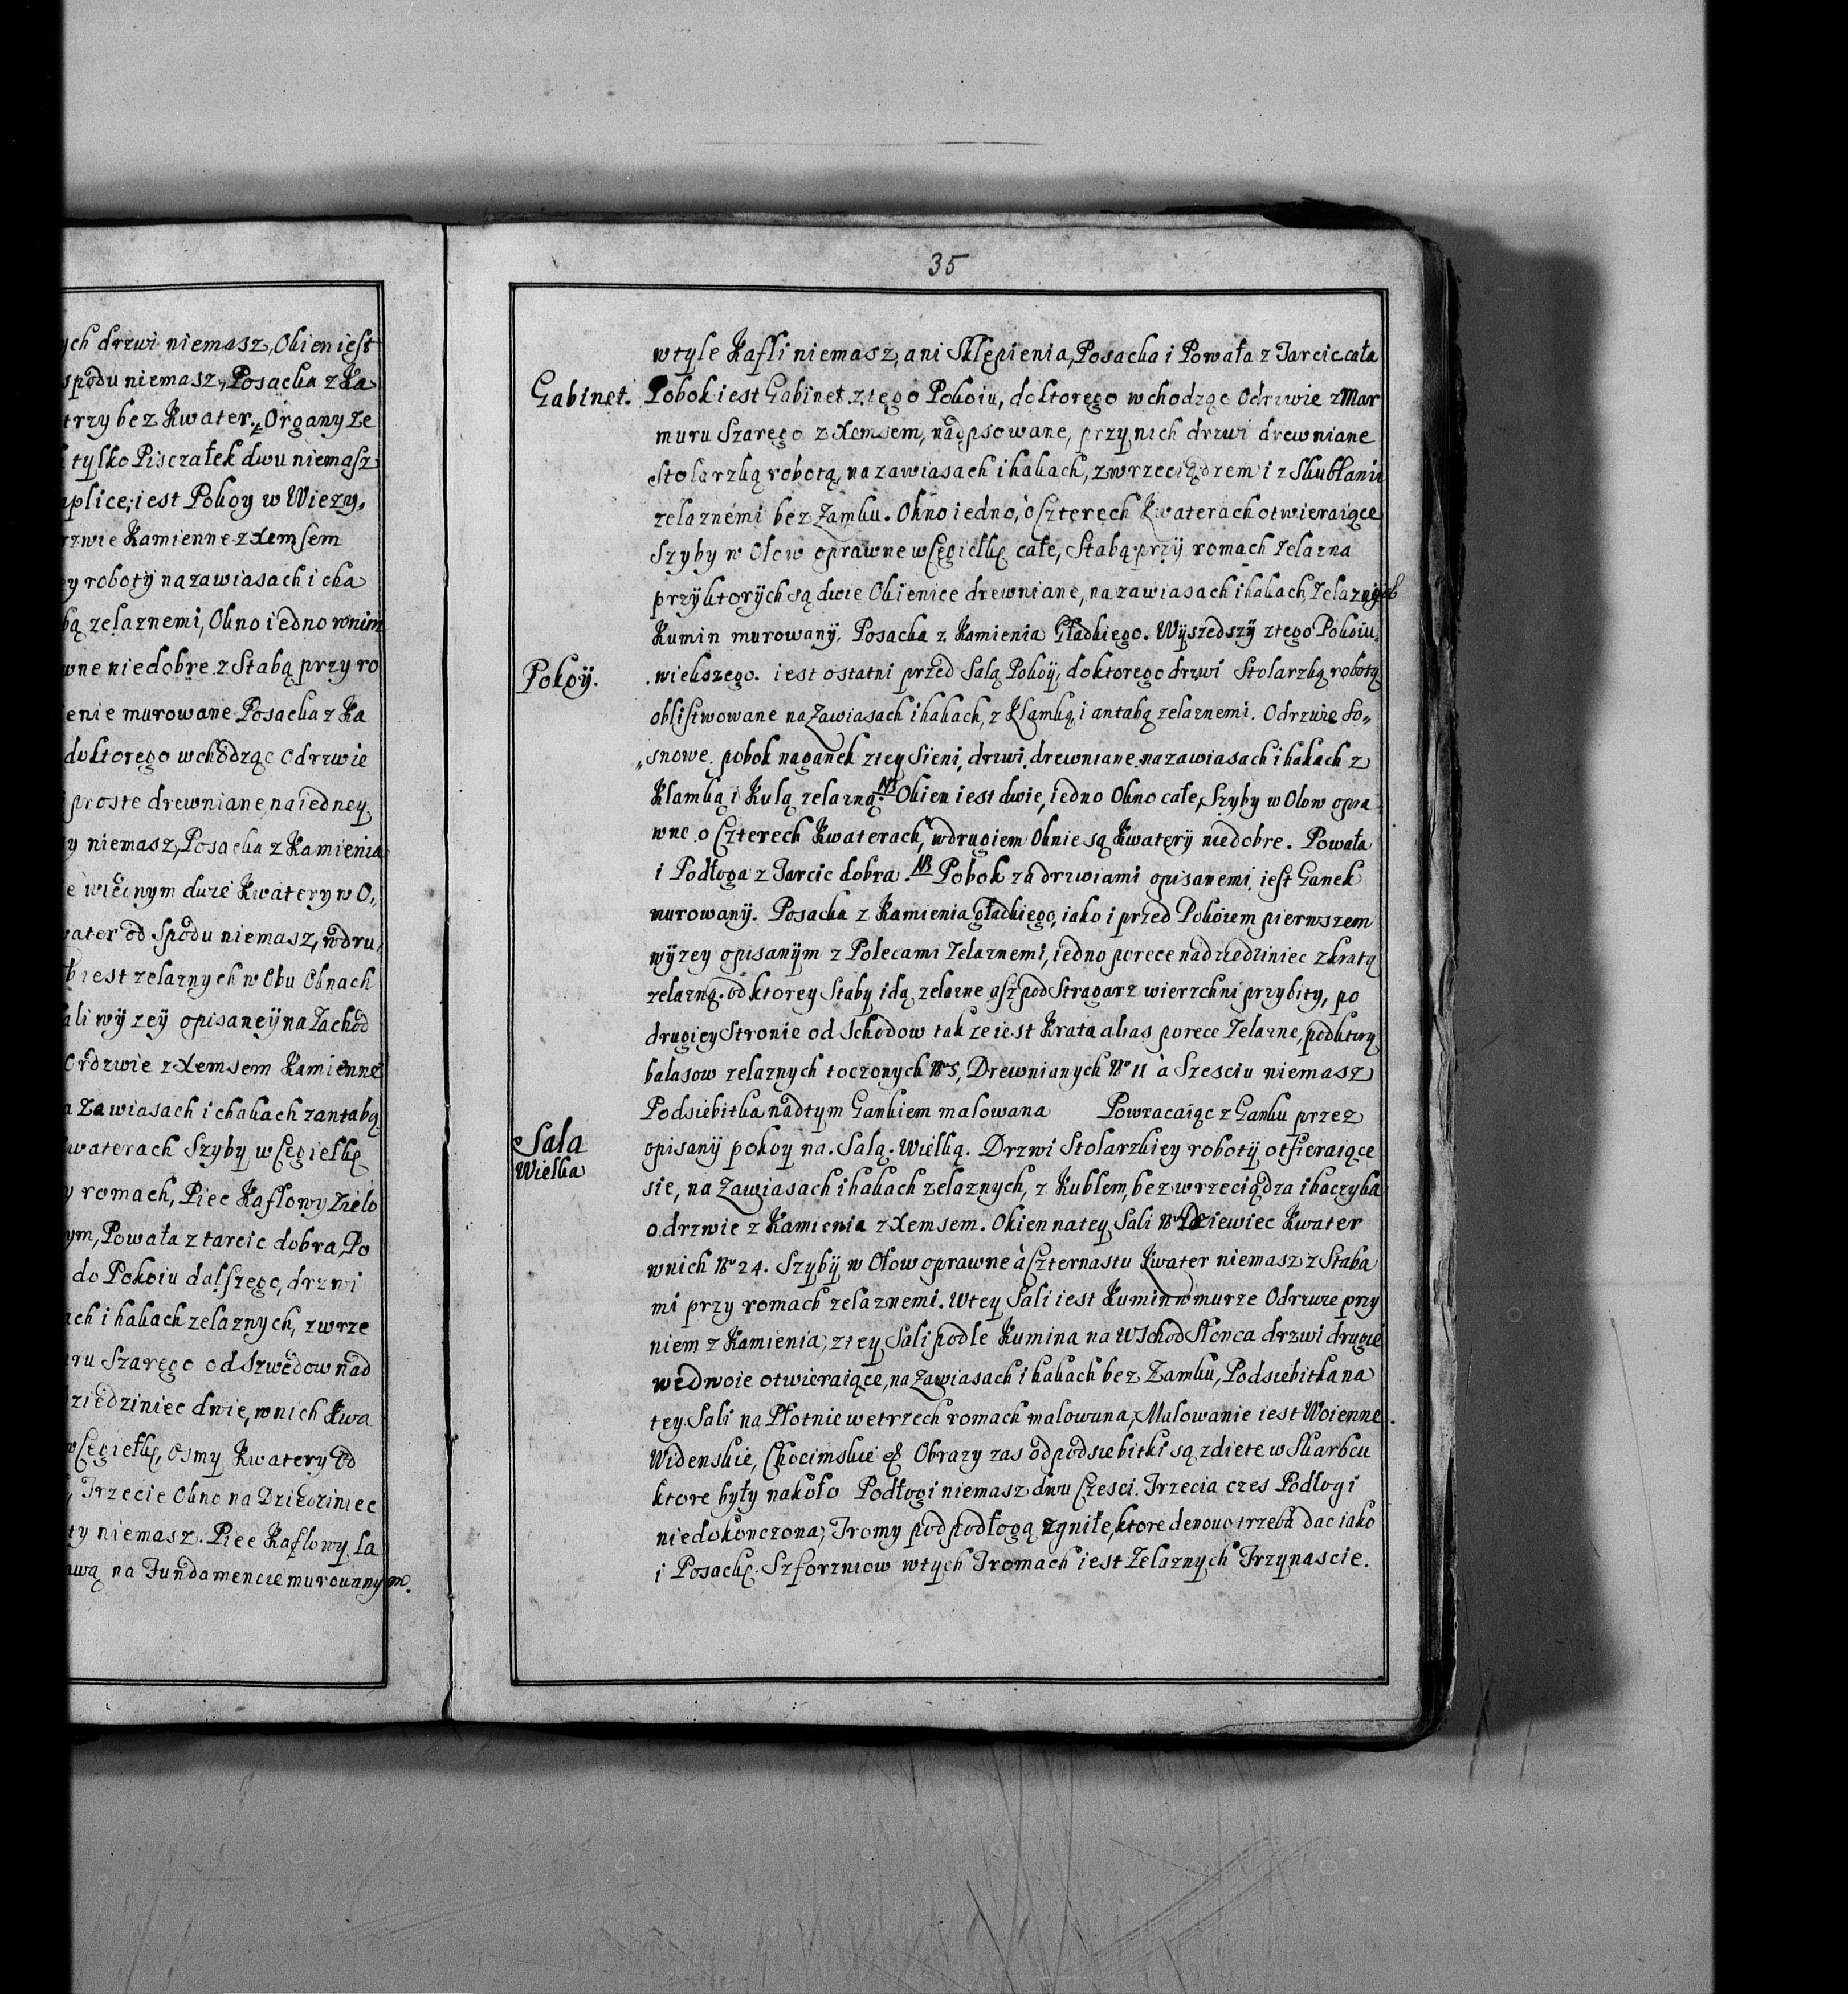 ych drzwi niemasz, Okien iest
spodu niemasz, Posacka z Ka
trzy bez Kwater. Organy ze
tylko Pisczałek dwu niemasz
aplice; iest Pokoy w Wiezy,
rzwie Kamienne z Xemsem
ey roboty na zawiasach i cha
bą zelaznemi, Okno iedno w nim
wne niedobre z Stabą przy ro
ienie murowane Posacka z Ka
doktorego wchodząc Odrzwie
proste drewniane na iedney
y niemasz, Posacka z Kamienia
e wiednym duże Kwatery w O,,
water od Spodu niemasz, wdru,
b iest zelaznych w Obu Oknach
ali wyzey opisaneÿ na Zachod
Ordzwie z Xemsem Kamienne
a Zawiasach i chakach z antabą
kwaterach Szyby w Cegiełkę
y romach, Piec Kaflowy Zielo
ym, Powała z tarcic dobra, Po
do Pokoiu dalszego, drzwi
ach i hakach zelaznych, z wrze
uru Szarego od Szwedow nad
dziedziniec dwie, wnich Kwa
w Cegiełkę, osmy Kwatery od
Trzecie Okno na Dziedziniec
ty niemasz. Piec Kaflowy, sa
awą na Fundamencie murowanym.
35
w tyle Kafli niemasz, ani Sklepienia, Posacka i Powała z Tarcic cała
Gabinet. Pobok iest Gabinet z tego Pokoiu, doktorego wchodząc Odrzwie z Mar
muru Szarego z Xemsem, nadpsowane, przy nich drzwi drewniane
Stolarzką robotą, na zawiasach i hakach, z wrzeciądzem i z Skublami
zelaznemi bez Zamku. Okno iedno, o Czterech Kwaterach otwieraiące
Szyby w Ołow oprawne w Cegiełkę całe, Stabą przÿ romach Zelazna
przÿktorÿch są dwie Okienice drewniane, na zawiasach i hakach Zelaznÿch
Kumin murowanÿ. Posacka z Kamienia Gładkiego. Wÿszedszÿ z tego Pokoiu,
Pokoÿ. wiekszego. iest ostatni przed Salą Pokoÿ, doktorego drzwi Stolarzką robotą
oblistwowane na Zawiasach i hakach, z Klamką i antabą zelaznemi. Odrzwie So,,
,,snowe. pobok na ganek z tey Sieni, drzwi drewniane na zawiasach i hakach z
Klamką i Kulą zelazną. NB Okien iest dwie, iedno Okno całe, Szyby w Olow opra
wne o Czterech Kwaterach, wdrugiem Oknie są Kwaterÿ niedobre. Powała
i Podłoga z Tarcic dobra. NB Pobok za drzwiami opisanemi iest Ganek
murowanÿ. Posacka z Kamienia gładkiego, iako i przed Pokoiem pierwszem
wÿzey opisanÿm z Polecami Zelaznemi, iedno porece nad dziedziniec z kratą
zelazną. od ktorey Staby idą zelazne asz pod Stragarz wierzchni przybity, po
drugiey Stronie od Schodow takze iest Krata alias porece Zelazne, pod ktorą
balasow zelaznych toczonych No 5, Drewnianych No 11 à Szesciu niemasz
Podsiebitka nadtym Gankiem malowana Powracaiąc z Ganku przez
Sala opisanÿ pokoy na Salą Wielką. Drzwi Stolarzkiey robotÿ otfieraiące
Wielka sie, na Zawiasach i hakach zelaznych, z Kublem, bez wrzeciądza i haczyka
odrzwie z Kamienia z Xemsem. Okien natey Sali No Dziewiec Kwater
wnich No 24. Szybÿ w Ołow oprawne à Czternastu Kwater niemasz z Staba
mi przy romach zelaznemi. Wtey Sali iest Kumin w murze Odrzwie przy
niem z Kamienia, z tey Sali podle Kumina na Wschod Słonca drzwi drugie
wedwoie otwieraiące, na Zawiasach i hakach bez Zamku, Podsiebitka na
tey Sali na Płotnie wetrzech romach malowana, Malowanie iest Woienne
Widenskie, Chocimskie & Obrazy zas od podsiebitki są zdiete w Skarbcu
ktore były nakoło Podłogi niemasz dwu Czesci. Trzecia czes Podłogi
niedokonczona, Tromy pod podłogą zgniłe, ktore denouo trzeba dac iako
i Posackę. Szforzniow wtych Tromach iest Zelaznych Trzynascie.